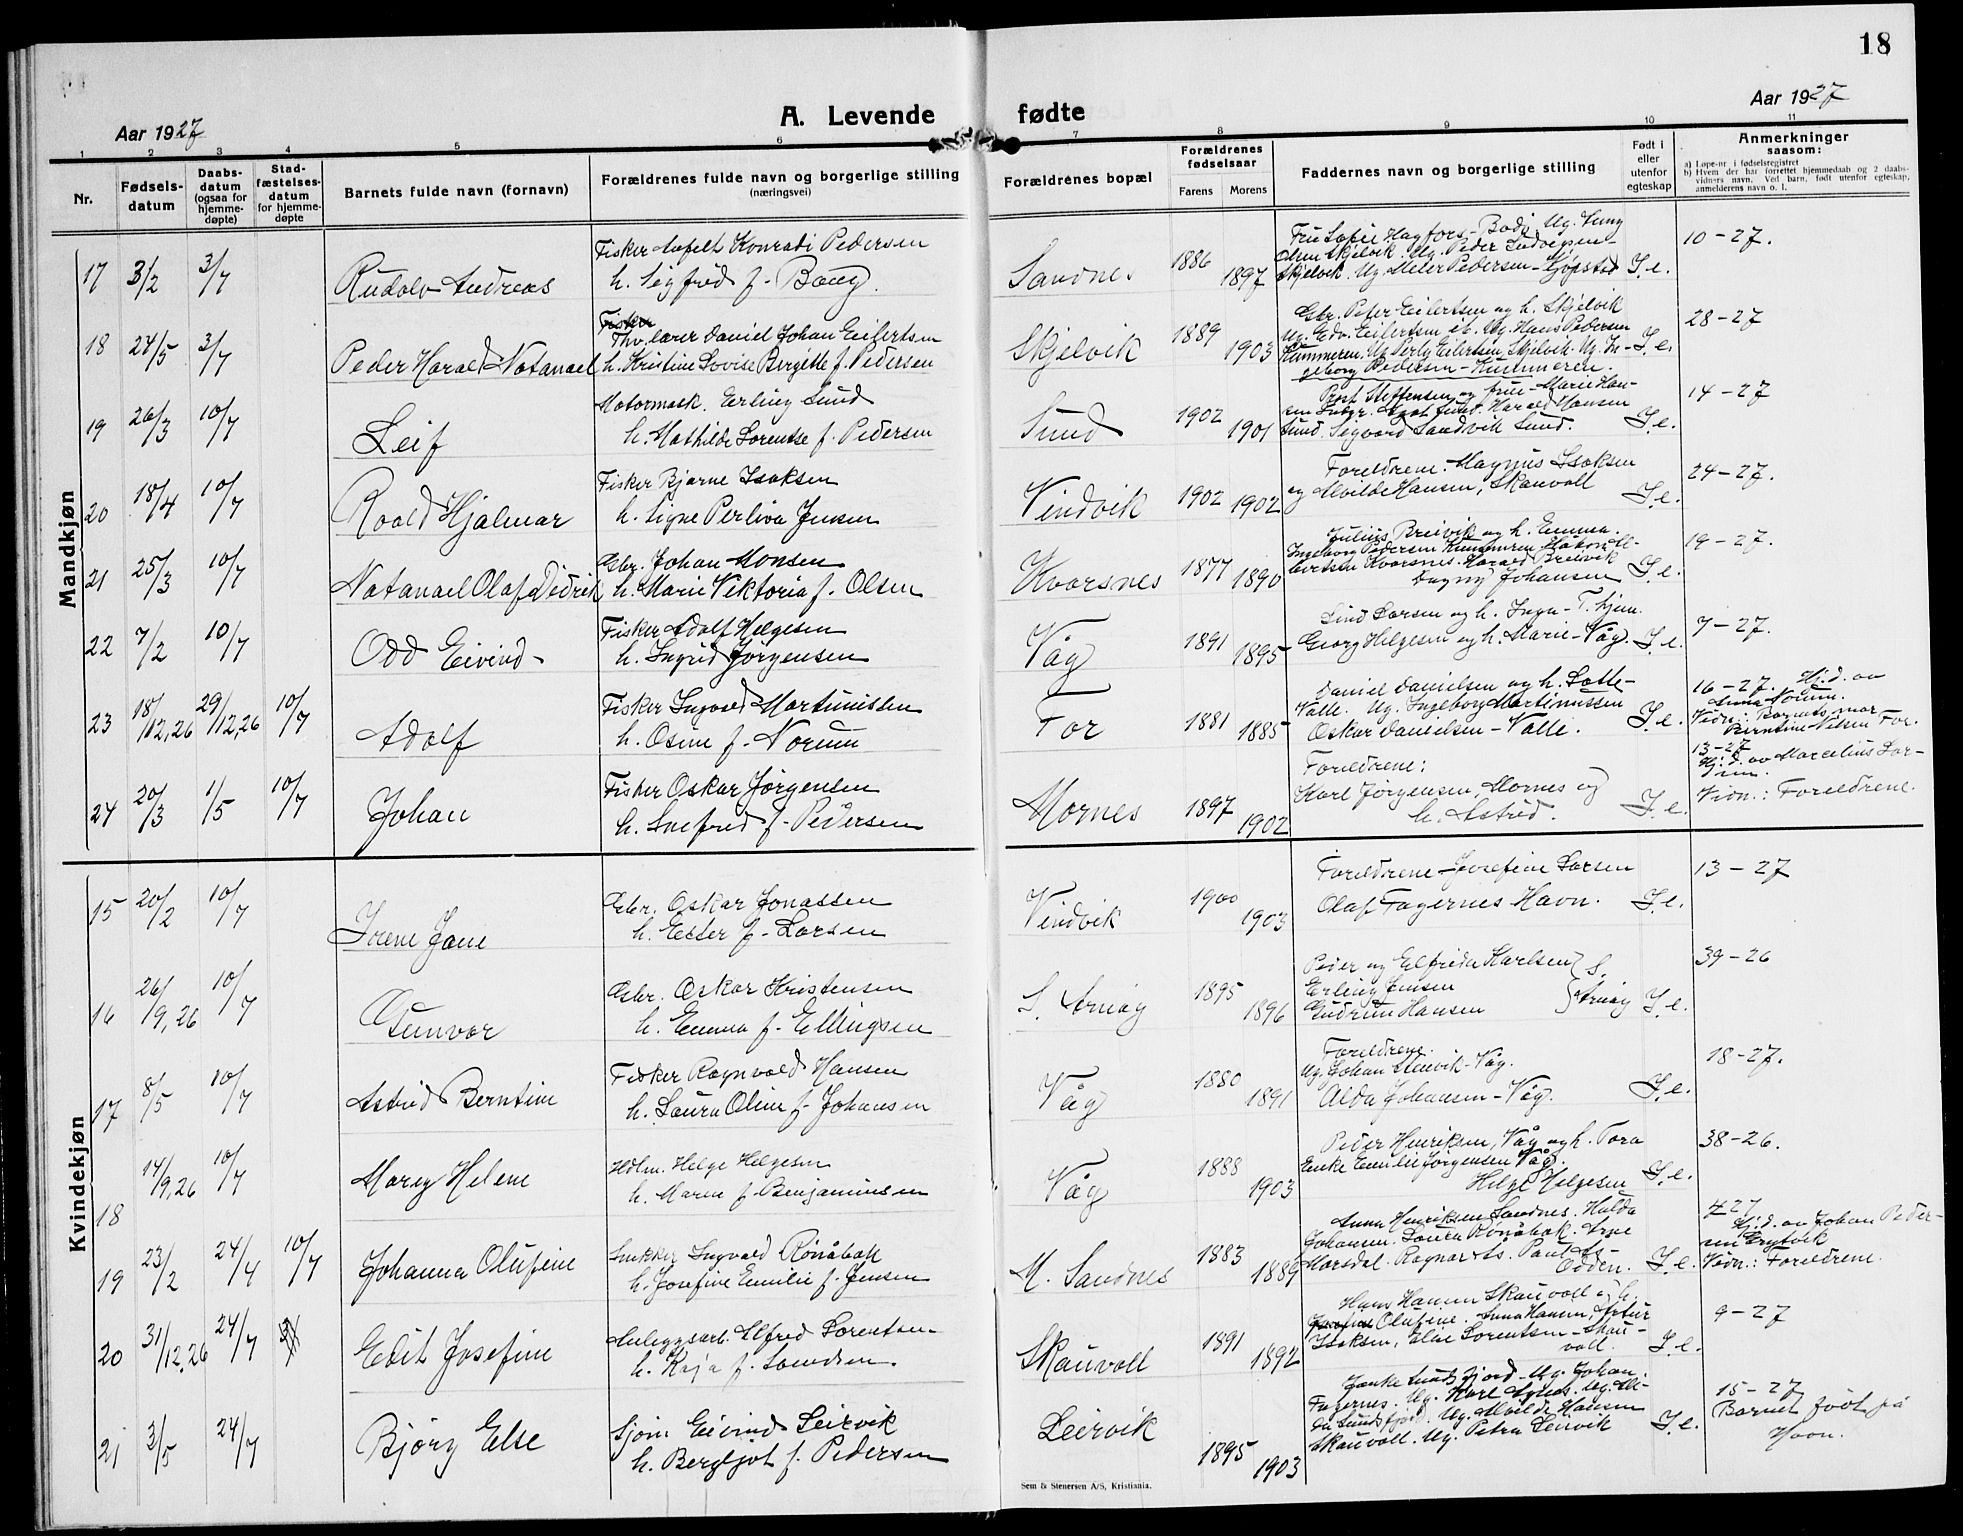 18
Aar 1927
A. Levende fødte
Aar 1927
1 2 3 4 5 6 7 8 9 10 11
Nr.
Fødsels-
datum
Daabs-
datum
(ogsaa for
hjemme-
døpte)
Stad-
fæstelses-
datum
for hjemme-
døpte
Barnets fulde navn (fornavn)
Forældrenes fulde navn og borgerlige stilling
(næringsvei)
Forældrenes bopæl
Forældrenes
fødselsaar
Farens Morens
Faddernes navn og borgerlige stilling
Født i
eller
utenfor
egteskap
Anmerkninger
saasom:
a) Løpe-nr i fødselsregistret
b) Hvem der har forrettet hjemmedaab og 2 daabs-
vidners navn. Ved barn, født utenfor egteskap,
anmelderens navn o. l.
Mandkjøn
17 3/2 3/7 Rudolv Andreas
Fisker Konradi Pedersen
h. Sigfrid f. Bang.
Sandnes 1886 1897
Skjelvik. Ug. Peder Pedersen - Gjøpstad I. e.
10-27.
18 24/5 3/7 Peder Harald Natanael
Fisker
Thv. lærer Daniel Johan Eilertsen
h. Kristine Lovise Bergitte f. Pedersen
Skjelvik 1889 1903
Gbr. Peter Eilertsen og h. Skjelvik
Ug. Edv. Eilertsen ib. Ug. Hans Pedersen
Kummeren. Ug. Perly Eilertsen, Skjelvik. Ug. In-
geborg Pedersen - Kummeren. I. e.
28-27
19 26/3 10/7 Leif
Motormask. Erling Sund
h. Mathilde Lorentse f. Pedersen
Sund 1902 1901
Prost Steffensen og frue - Marie Han-
sen Harald Hansen
Sund. Sigvard Sandvik Sund. I. e.
14-27
20 18/4 10/7 Roald Hjalmar
Fisker Bjarne Isaksen
h. Signe Perliva Jensen
Vindvik 1902 1902
Foreldrene. Magnus Isaksen
og Alvilde Hansen, Skauvoll I. e.
24-27.
21 25/3 10/7 Natanael Olaf Didrik
Gbr. Johan Monsen
h. Marie Viktoria f. Olsen
Kvarsnes 1877 1890
Julius Breivik og h. Emma.
Ingeborg Pedersen Kummeren Håkon Al-
bertsen Kvarsnes. Harald Breivik
Dagny Johansen I. e.
19-27.
22 7/2 10/7 Odd Eivind
Fisker Adolf Helgesen
h. Ingrid Jørgensen
Våg 1891 1895
Larsen og h. Inga - T.hjem.
Georg Helgesen og h. Marie - Våg. I. e.
7-27.
23 18/12,26 29/12,26 10/7 Adolf
Fisker Ingvald Martinussen
h. Osine f. Norum
Tor 1881 1885
Daniel Danielsen og h. Lotte -
Valle. Ug. Ingeborg Martinussen
Oskar Danielsen - Valle. I. e.
16-27. Hj.d. av
Anna Norum.
Vidn.: Barnets mor
Berntine Nilsen Tor.
24 20/3 1/5 10/7 Johan
Fisker Oskar Jørgensen
h. Snefrid f. Pedersen
Mornes 1897 1902
Foreldrene:
Karl Jørgensen, Mornes og
h. Astrid. I. e.
13-27
Hj.d. av Marcelius Lar-
sen.
Vidn.: Foreldrene.
Kvindekjøn
15 20/2 10/7 Irene Jane
Gbr. Oskar Jonassen
h. Ester f. Larsen
Vindvik 1900 1903
Foreldrene - Josefine Larsen
Olaf Fagernes Havn. I. e.
13-27
16 26/9,26 10/7 Gunvor
Gbr. Oskar Kristensen
h. Emma f. Ellingsen
S. Arnøy 1895 1896
Peder og Elfrida Karlsen } S.
Erling Jensen
Gudrun Hansen } Arnøy I. e.
39-26
17 8/5 10/7 Astrid Berntine
Fisker Ragnvald Hansen
h. Laura Oline f. Johansen
Våg 1880 1891
Foreldrene.
Ug. Johan Stenvik - Våg.
Alda Johansen - Våg. I. e.
18-27.
18 14/9,26 10/7 Mary Helene
Hdlm. Helge Helgesen
h. Maren f. Benjaminsen
Våg 1888 1903
Peder Henriksen, Våg og h. Tora
Enke Emilie Jørgensen Våg.
Helge Helgesen I. e.
38-26.
19 23/2 24/4 10/7 Johanna Olufine
Snekker Ingvald Rønåbak
h. Josefine Emilie f. Jensen
N. Sandnes 1883 1889
Anna Henriksen Sandnes. Hulda
Johansen. Laura Rønåbak. Arne
Morsdal. Ragnar As. Paul As -
Odden. I. e.
27
Hj.d. av Johan Peder-
sen
Vidn.: Foreldrene.
20 31/12,26 24/7 Edit Josefine
Anleggsarb. Alfred Lorentsen
h. Kaja f. Larsen
Skauvoll 1891 1892
Hans Hansen Skauvoll og h.
Olufine. Anna Hansen, Artur
Isaksen, Elise Lorentsen - Skau-
voll. I. e.
9-27
21 3/5 24/7 Bjørg Else
Sjøm Eivind Leirvik
h. Bergljot f. Pedersen
Leirvik 1895 1903
Sundsfjord - Ug. Johan
Fagernes. Ug. Karl
Sundsfjord. Ug. Alvilde Hansen
Skauvoll. Ug. Petra Leirvik I. e.
15-27
Barnet født på
Havn.
Sem & Stenersen A/S, Kristiania.